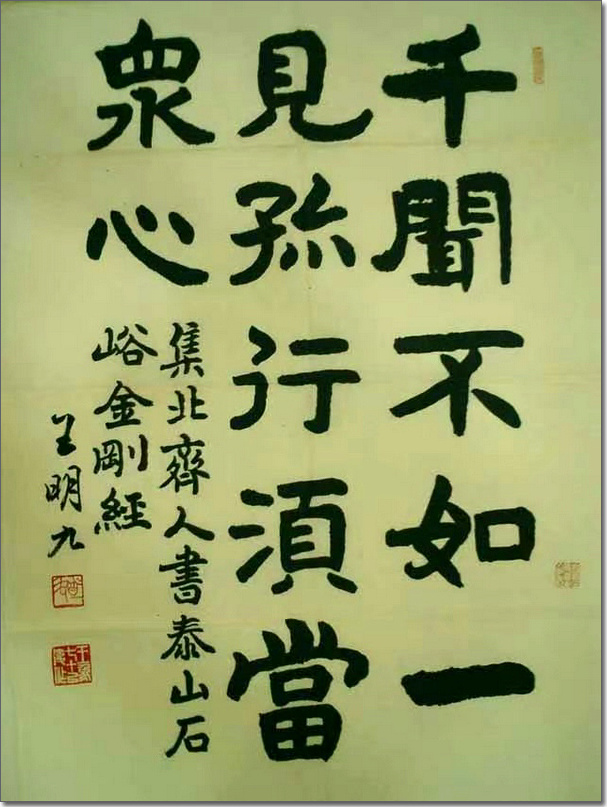 千聞不如一
見孤行須當
衆心
集北齊人書泰山石
峪金剛經
王明九